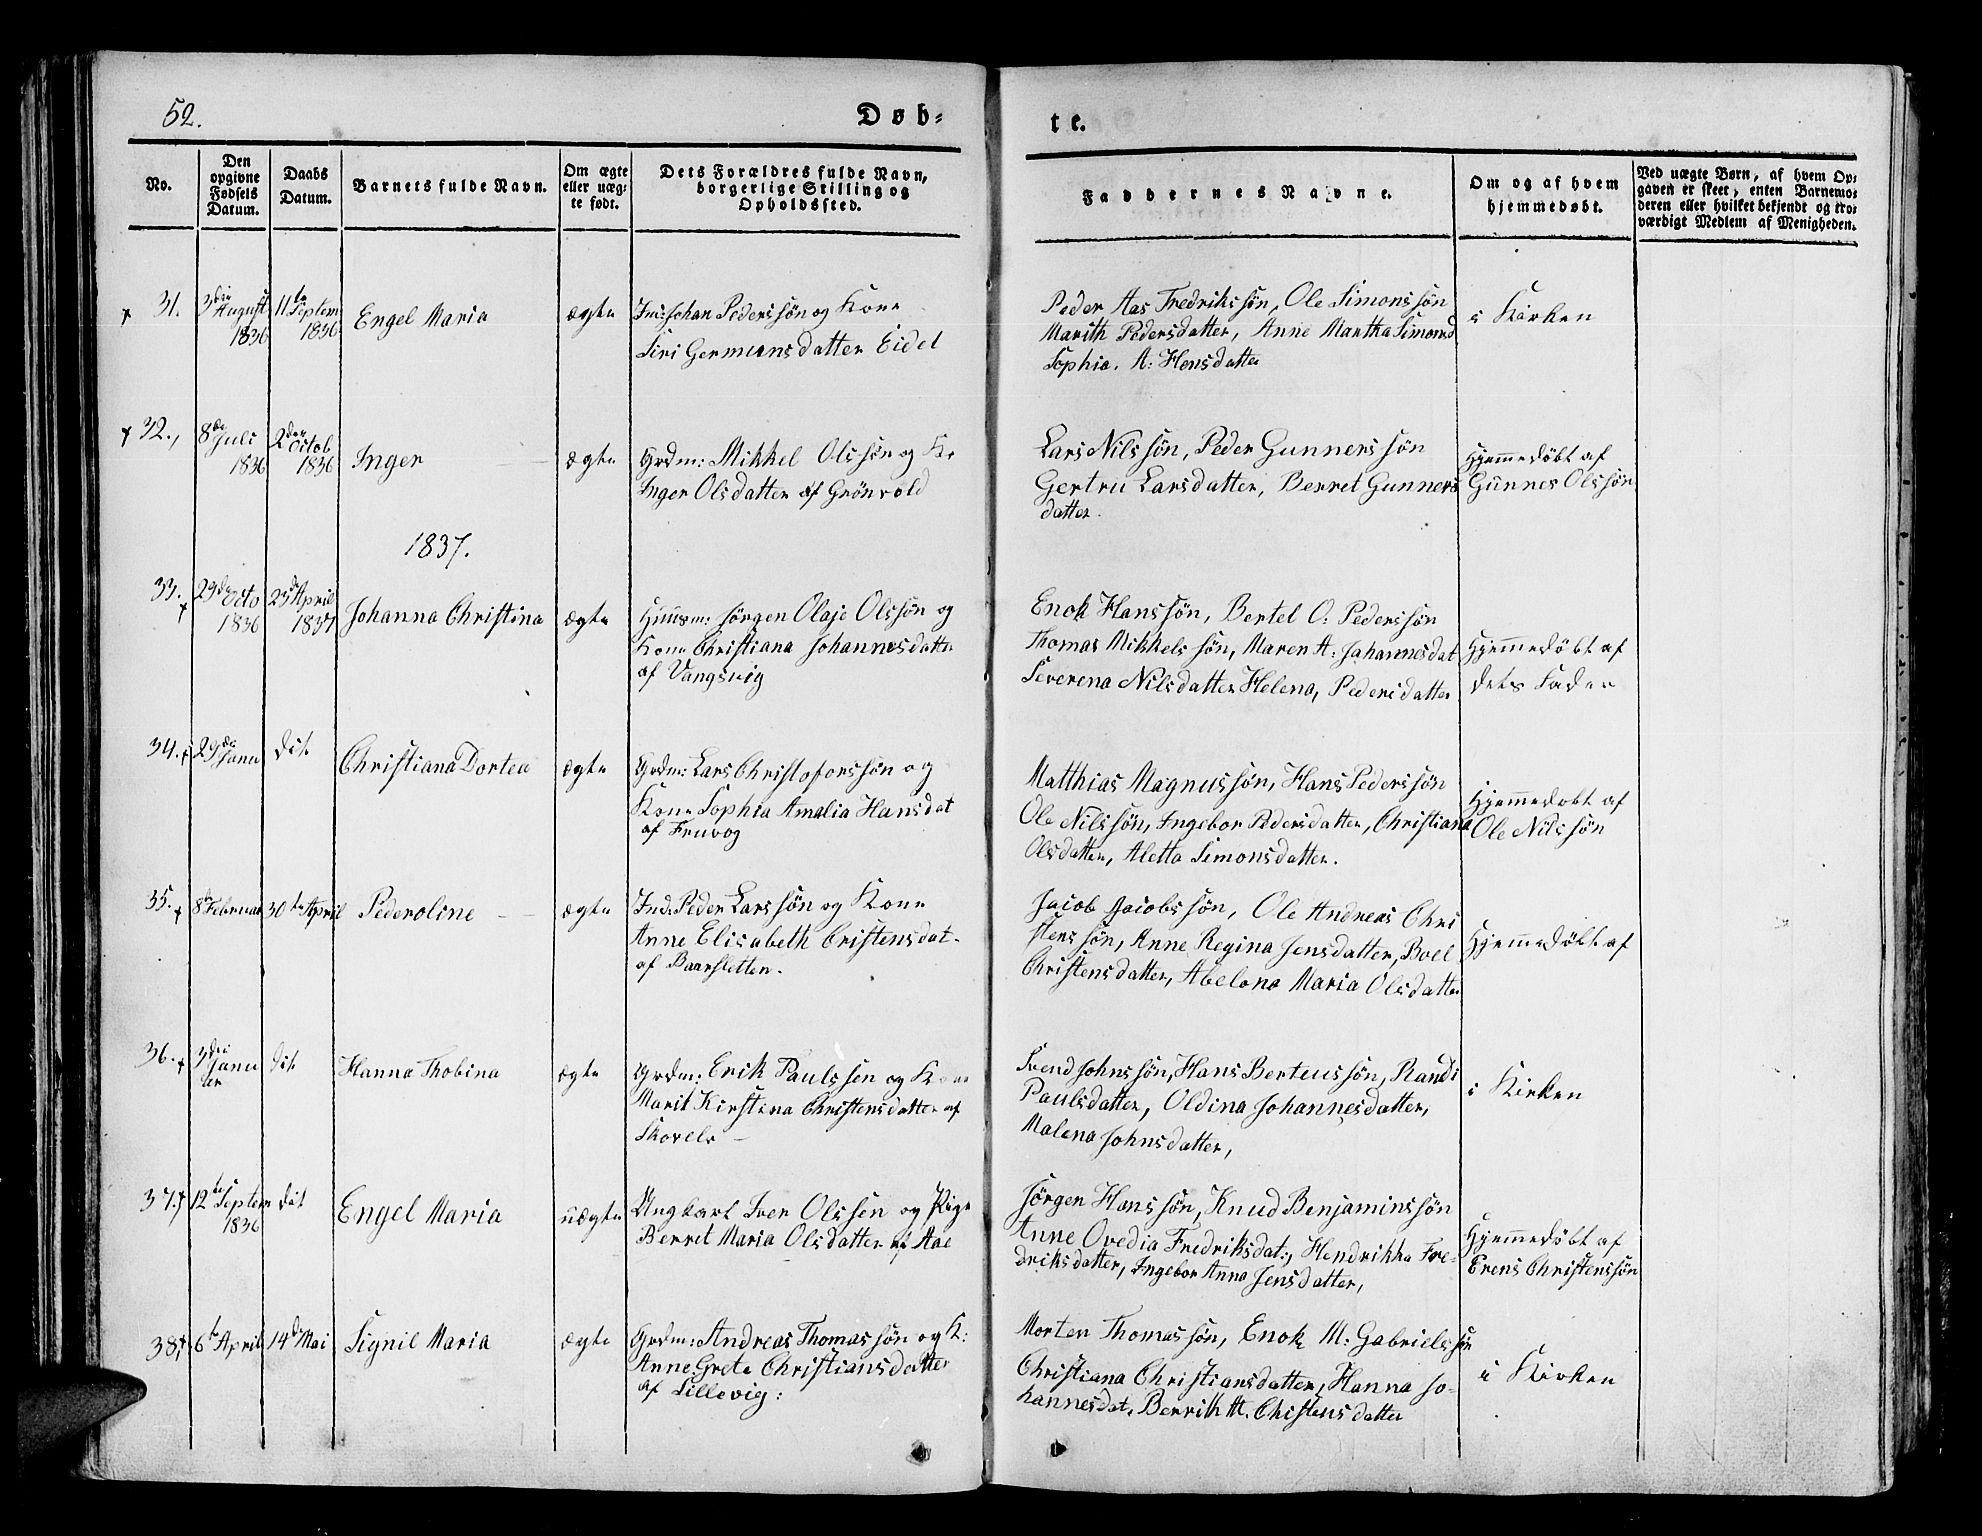 52.
Døb-
te.
No.
Den opgivne Fødsels Datum.
Daabs Datum.
Barnets fulde Navn.
Om ægte eller uæg- te født.
Dets Forældres fulde Navn, borgerlige Stilling og Opholdssted.
Faddernes Navne.
Om og af hvem hjemmedøbt.
Ved uægte Børn, af hvem Op- gaven er skeet, enten Barnemo- deren eller hvilket bekjendt og tro- værdigt Medlem af Menigheden.
31.
3die August 1836
11te Septem 1836
Engel Maria
ægte
Ind: Johan Pederssøn og Kone
Siri Germundsdatter Eidet
Peder Aas Fredrikssøn, Ole Simonssøn
Marith Pedersdatter, Anne Martha Simonsd
Sophia. A: Hansdatter
i Kirken
32.
8de Juli 1836
2den Octob 1836
Inger
ægte
Grdm: Mikkel Olssøn og Ko
Inger Olsdatter af Grönvold
Lars Nilssøn, Peder Gunnerssøn
Gertru Larsdatter, Berret Gunners
datter.
Hjemmedøbt af
Gunnes Olssøn
1837.
33.
29de Octo 1836
23de April 1837
Johanna Christina
ægte
Huusm: Jørgen Olaje Olssøn og
Kone Christiana Johannesdatter
af Vangsvig
Enok Hanssøn, Bertel O: Pederssøn
Thomas Mikkelssøn, Maren A: Johannesdat
Severena Nilsdatter Helena, Pedersdatter
Hjemmedøbt af
dets Fader
34.
29de Janu
dit.
Christiana Dortea
ægte
Grdm: Lars Christoforssøn og
Kone Sophia Amalia Hansdat
af Fruvog
Matthias Magnussøn, Hans Pederssøn
Ole Nilssøn, Ingebor Pedersdatter, Christiana
Olsdatter, Aletta Simonsdatter.
Hjemmedøbt af
Ole Nilssøn
35.
8de Februar
30te April
Pederoline
ægte
Ind: Peder Larssøn og Kone
Anne Elisabeth Cristensdat.
af Baarsletten.
Jacob Jacobssøn, Ole Andreas Chri
stenssøn, Anne Regina Jensdatter, Boel
Christensdatter, Abelona Maria Olsdatter
Hjemmedøbt af
36.
3die Janu ar
dit.
Hanna Thobina
ægte
Grdm: Erik Paulssen og Kone
Marit Kirstina Christensdatter af
Skovelv
Svend Johnssøn, Hans Berteussøn, Randi
Paulsdatter, Oldina Johannesdatter,
Malena Johnsdatter,
i Kirken
37.
12te Septem 1836
dit
Engel Maria
uægte
Ungkart Iver Olssen og Pige
Berret Maria Olsdatter af Aae
Jörgen Hanssøn, Knud Benjaminssön
Anne Ovedia Fredriksdat:, Hendrikka Fre-
driksdatter, Ingebor Anna Jensdatter,
Hjemmedøbt af
Erens Christenssøn
38.
6te April
14de Mai
Signil Maria
ægte
Grdm: Andreas Thomassøn og K:
Anne Grete Christiansdatter
af Lillevig:
Morten Thomassøn, Enok M: Gabrielssøn
Christiana Christiansdatter, Hanna Jo-
hannesdat, Berrith M. Chistensdatter
i Kirken